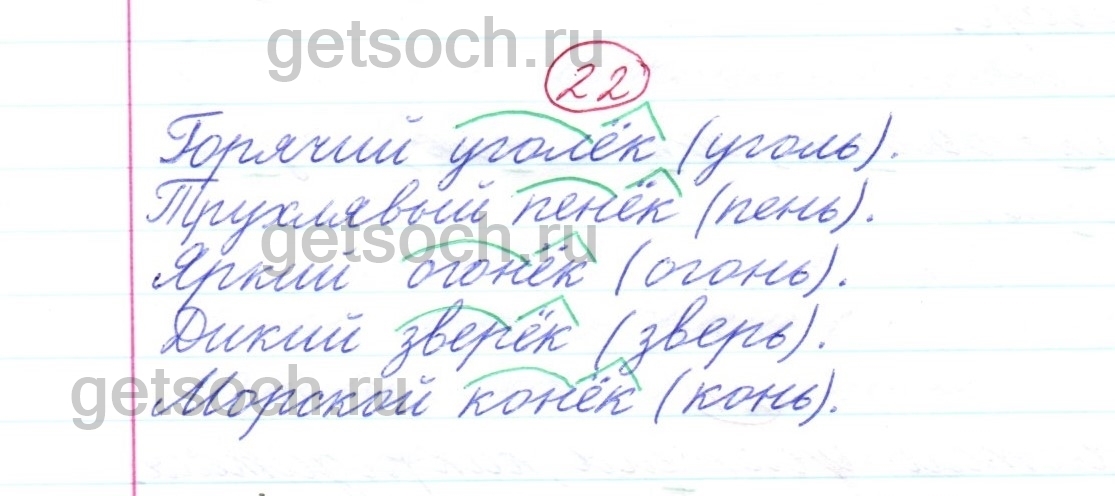 getsoch.ru
22
Горячий уголёк (уголь).
Трухлявый пенёк (пень).
getsoch.ru
Яркий огонёк (огонь).
Дикий зверёк (зверь).
getsoch.ru
Морской конёк (конь).